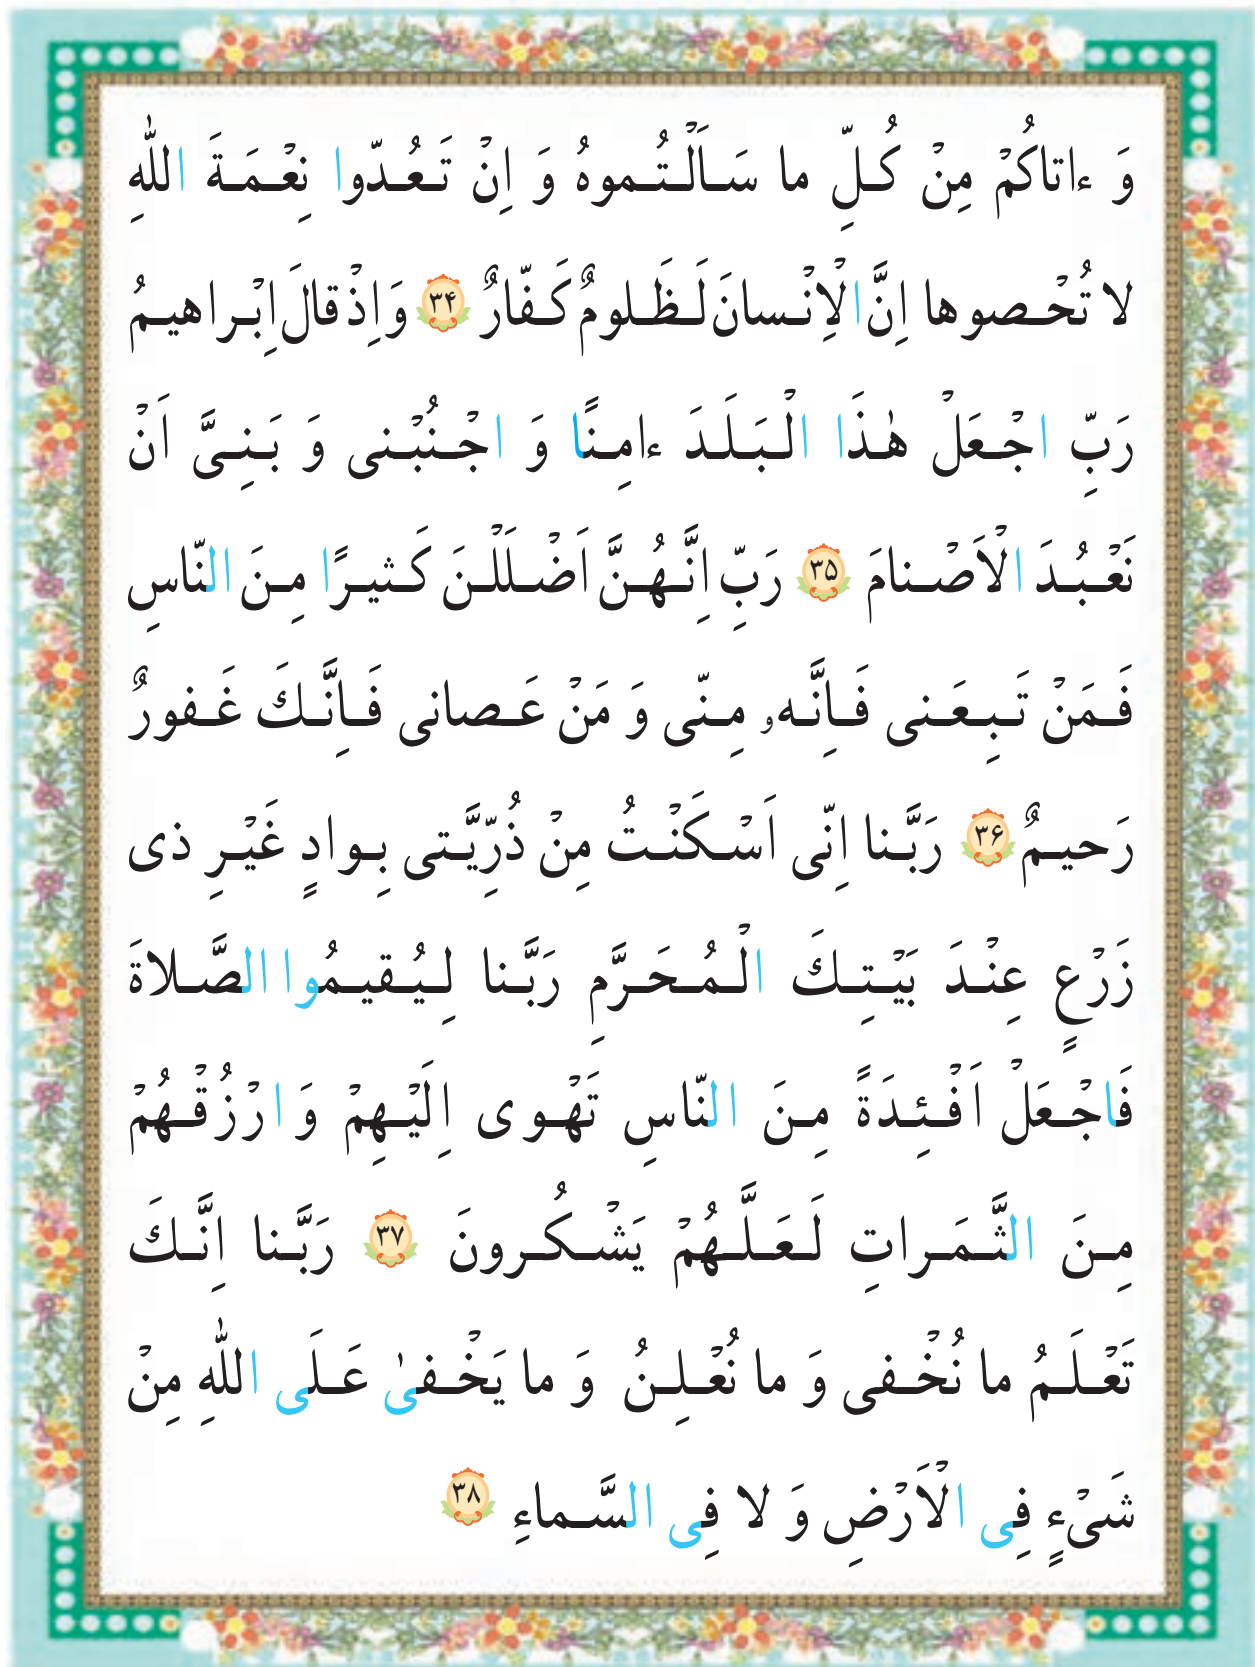 وَ ءاتاكُمْ مِنْ كُلِّ ما سَاَلْتُموهُ وَ اِنْ تَعُدّوا نِعْمَةَ اللّٰهِ
لا تُحْصوها اِنَّ الْاِنْسانَ لَظَلومٌ كَفّارٌ ۳۴ وَ اِذْ قالَ اِبْراهيمُ
رَبِّ اجْعَلْ هٰذَا الْبَلَدَ ءامِنًا وَ اجْنُبْنى وَ بَنِىَّ اَنْ
نَعْبُدَ الْاَصْنامَ ۳۵ رَبِّ اِنَّهُنَّ اَضْلَلْنَ كَثيرًا مِنَ النّاسِ
فَمَنْ تَبِعَنى فَاِنَّهو مِنّى وَ مَنْ عَصانى فَاِنَّكَ غَفورٌ
رَحيمٌ ۳۶ رَبَّنا اِنّى اَسْكَنْتُ مِنْ ذُرِّيَّتى بِوادٍ غَيْرِ ذى
زَرْعٍ عِنْدَ بَيْتِكَ الْمُحَرَّمِ رَبَّنا لِيُقيمُوا الصَّلاةَ
فَاجْعَلْ اَفْئِدَةً مِنَ النّاسِ تَهْوى اِلَيْهِمْ وَ ارْزُقْهُمْ
مِنَ الثَّمَراتِ لَعَلَّهُمْ يَشْكُرونَ ۳۷ رَبَّنا اِنَّكَ
تَعْلَمُ ما نُخْفى وَ ما نُعْلِنُ وَ ما يَخْفىٰ عَلَى اللّٰهِ مِنْ
شَىْءٍ فِى الْاَرْضِ وَ لا فِى السَّماءِ ۳۸